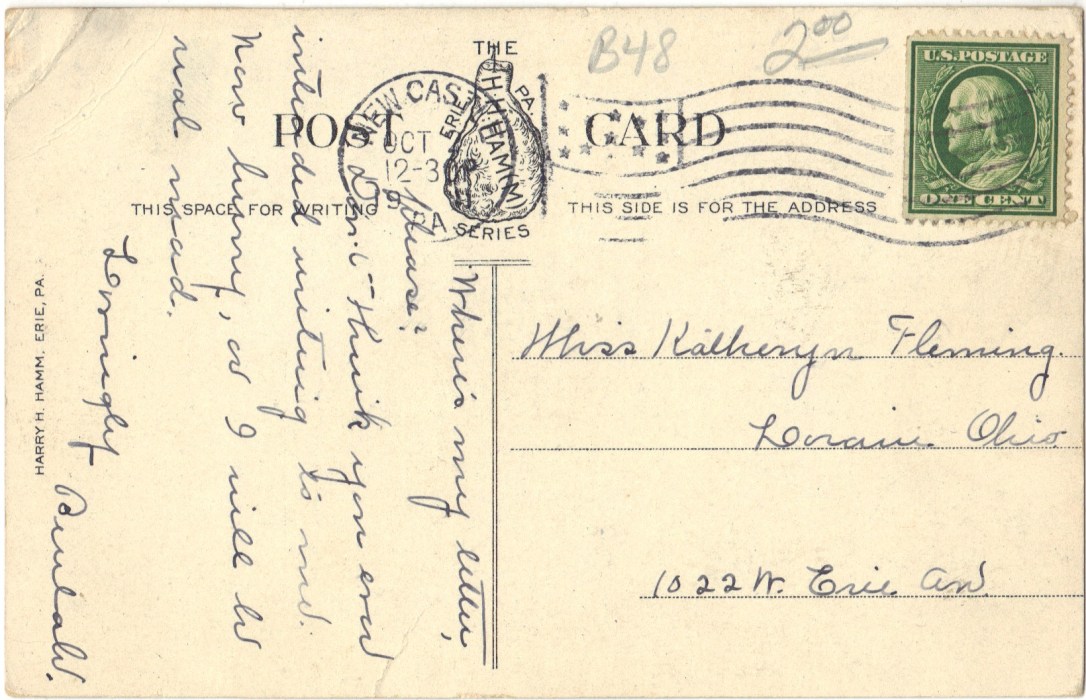 B48
2.00
THE
H. H. HAMM
ERIE
PA
SERIES
POST CARD
U.S. POSTAGE
ONE CENT
NEW CAST
OCT
12-30P
PA.
THIS SPACE FOR WRITING
THIS SIDE IS FOR THE ADDRESS
Where's my letter,
please?
Don't think you ever
intended writing to me.
Now hurry, or I will be
real mad.
Lovingly
HARRY H. HAMM, ERIE, PA.
Miss Katheryn Fleming.
Lorain Ohio
1022 W. Erie Ave